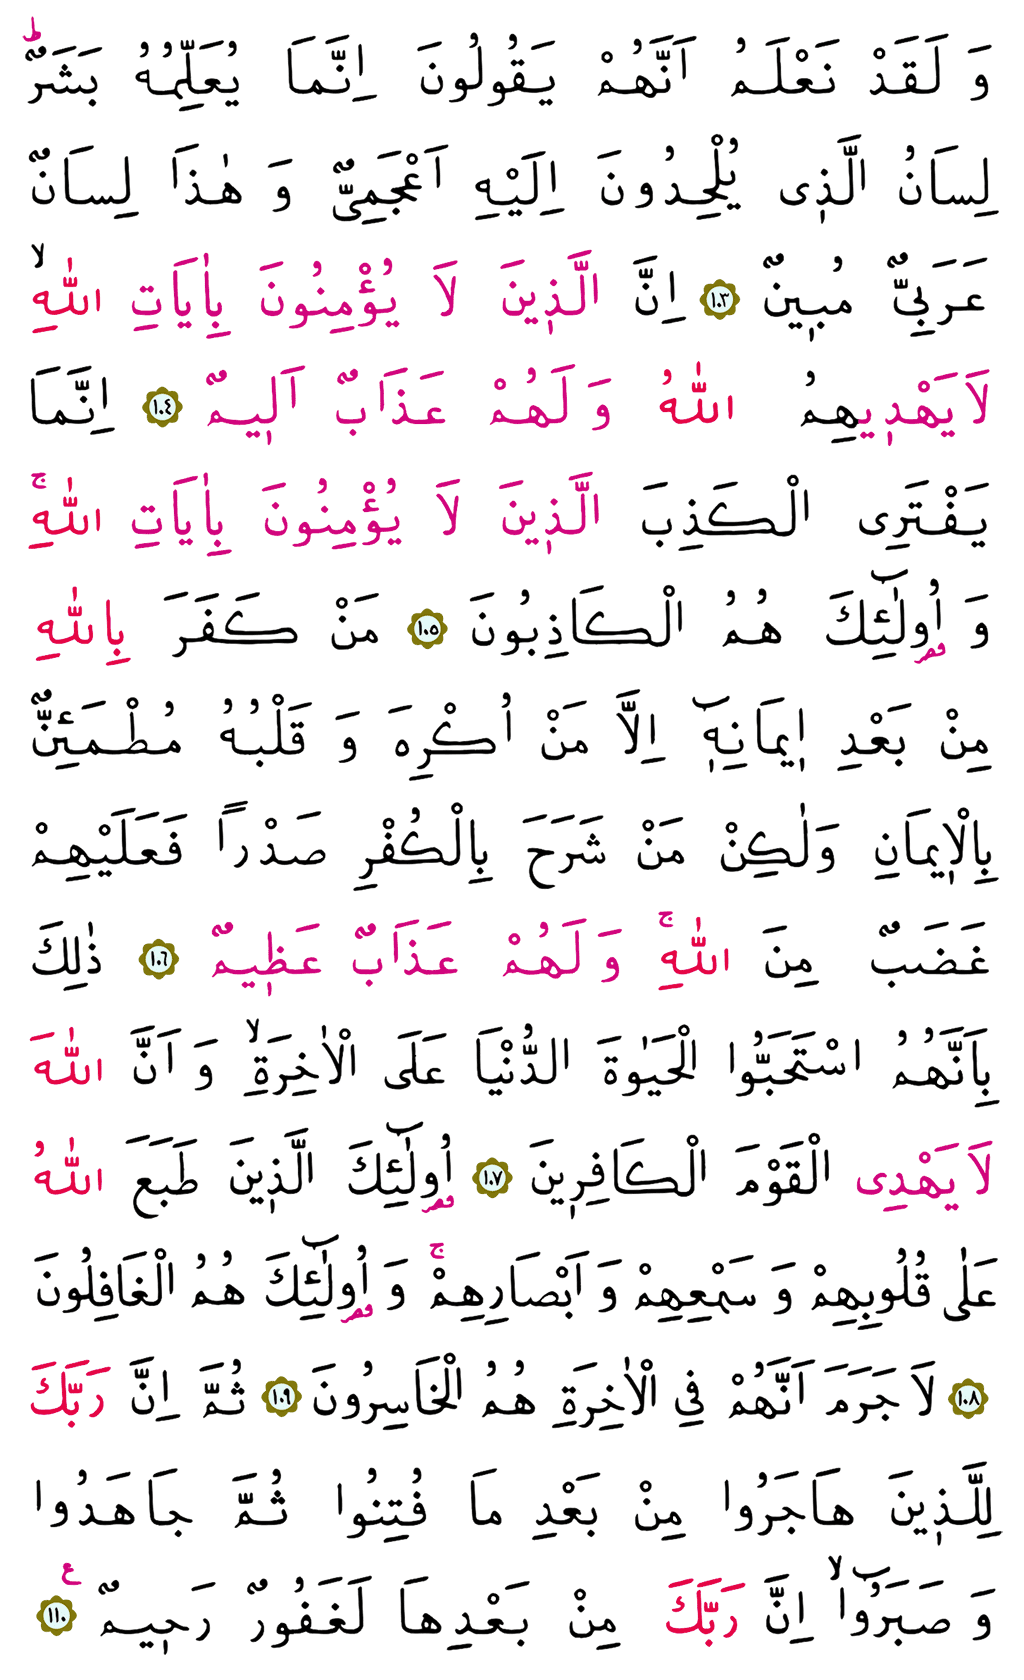 وَ لَقَدْ نَعْلَمُ اَنَّهُمْ يَقُولُونَ اِنَّمَا يُعَلِّمُهُ بَشَرٌۜ
لِسَانُ الَّذٖى يُلْحِدُونَ اِلَيْهِ اَعْجَمِىٌّ وَ هٰذَا لِسَانٌ
عَرَبِىٌّ مُبٖينٌ ﴿١٠٣﴾ اِنَّ الَّذٖينَ لَا يُؤْمِنُونَ بِاٰيَاتِ اللّٰهِۙ
لَا يَهْدٖيهِمُ اللّٰهُ وَ لَهُمْ عَذَابٌ اَلٖيمٌ ﴿١٠٤﴾ اِنَّمَا
يَفْتَرِى الْكَذِبَ الَّذٖينَ لَا يُؤْمِنُونَ بِاٰيَاتِ اللّٰهِۚ
وَ اُو۬لٰٓئِكَ هُمُ الْكَاذِبُونَ ﴿١٠٥﴾ مَنْ كَفَرَ بِاللّٰهِ
مِنْ بَعْدِ اٖيمَانِهٖٓ اِلَّا مَنْ اُكْرِهَ وَ قَلْبُهُ مُطْمَئِنٌّ
بِالْاٖيمَانِ وَلٰكِنْ مَنْ شَرَحَ بِالْكُفْرِ صَدْرًا فَعَلَيْهِمْ
غَضَبٌ مِنَ اللّٰهِۚ وَ لَهُمْ عَذَابٌ عَظٖيمٌ ﴿١٠٦﴾ ذٰلِكَ
بِاَنَّهُمُ اسْتَحَبُّوا الْحَيٰوةَ الدُّنْيَا عَلَى الْاٰخِرَةِۙ وَ اَنَّ اللّٰهَ
لَا يَهْدِى الْقَوْمَ الْكَافِرٖينَ ﴿١٠٧﴾ اُو۬لٰٓئِكَ الَّذٖينَ طَبَعَ اللّٰهُ
عَلٰى قُلُوبِهِمْ وَ سَمْعِهِمْ وَ اَبْصَارِهِمْۚ وَ اُو۬لٰٓئِكَ هُمُ الْغَافِلُونَ
﴿١٠٨﴾ لَا جَرَمَ اَنَّهُمْ فِى الْاٰخِرَةِ هُمُ الْخَاسِرُونَ ﴿١٠٩﴾ ثُمَّ اِنَّ رَبَّكَ
لِلَّذٖينَ هَاجَرُوا مِنْ بَعْدِ مَا فُتِنُوا ثُمَّ جَاهَدُوا
وَ صَبَرُٓواۙ اِنَّ رَبَّكَ مِنْ بَعْدِهَا لَغَفُورٌ رَحٖيمٌ ﴿١١٠﴾ ع